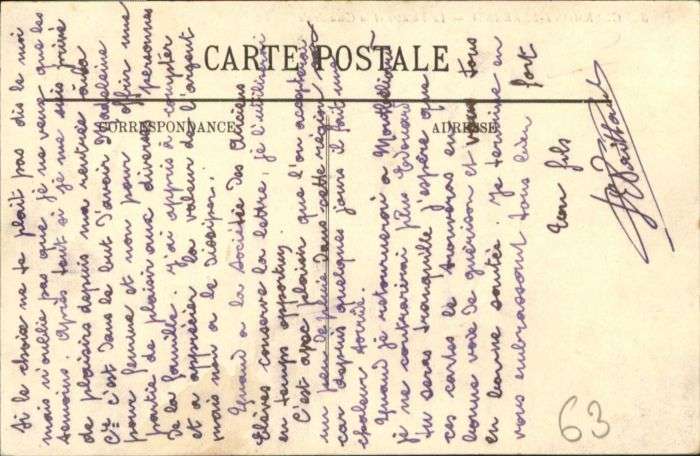 CARTE POSTALE
CORRESPONDANCE
ADRESSE
Si le choix ne te plait pas dis le moi
mais n'oublie pas que je ne veux que les
témoins. Après tout si je me suis privé
de plaisirs depuis ma rentrée à la
Cie c'est dans le but d'avoir Madeleine
pour femme et non pour offrir une
partie de plaisir aux diverses personnes
de la famille. J'ai appris à compter
et à apprécier la valeur de l'argent
mais non à le dissiper.
Quand à la Société des Anciens
Elèves conserve la lettre, je l'utiliserai
en temps opportun.
C'est avec plaisir que l'on accepterait
un peu de pluie dans cette région
car depuis quelques jours il fait une
chaleur torride.
Quand je retournerai à Montbéliard
je ne contrarierai plus Edouard
tu seras tranquille j'espère que
ces cartes le trouveras en
bonne voie de guérison et vous tous
en bonne santé. Je termine en
vous embrassant tous bien fort
Ton fils
63